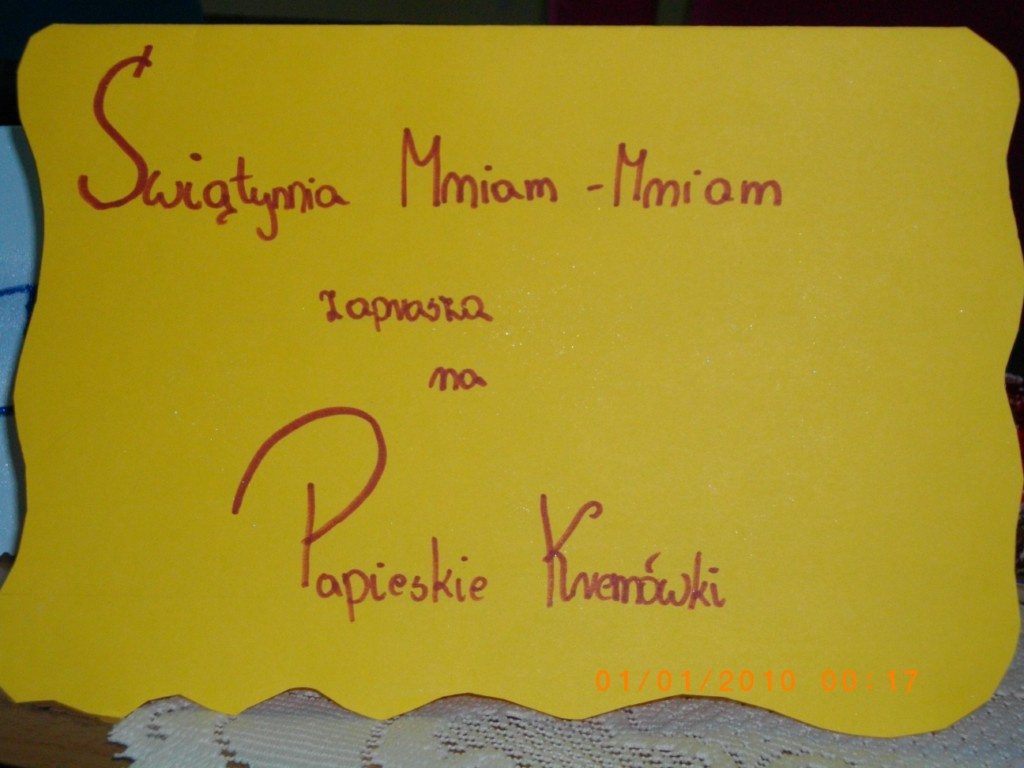 Świątynia Mniam - Mniam
zaprasza
na
Papieskie Kremówki
01/01/2010 00:17